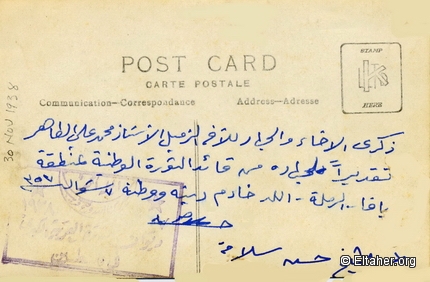 POST CARD
CARTE POSTALE
Communication—Correspondance
Address—Adresse
STAMP
HERE
30 NOV 1938
ذكرى الاخاء والجهاد للأخ الزميل الاستاذ محمد علي الطاهر
تقديراً لجهاده من قائد الثورة الوطنية لمنطقة
يافا - الرملة - اللد خادم دينه ووطنه ٧ شوال ٣٥٧
حسن سلامة
© Eltaher.org